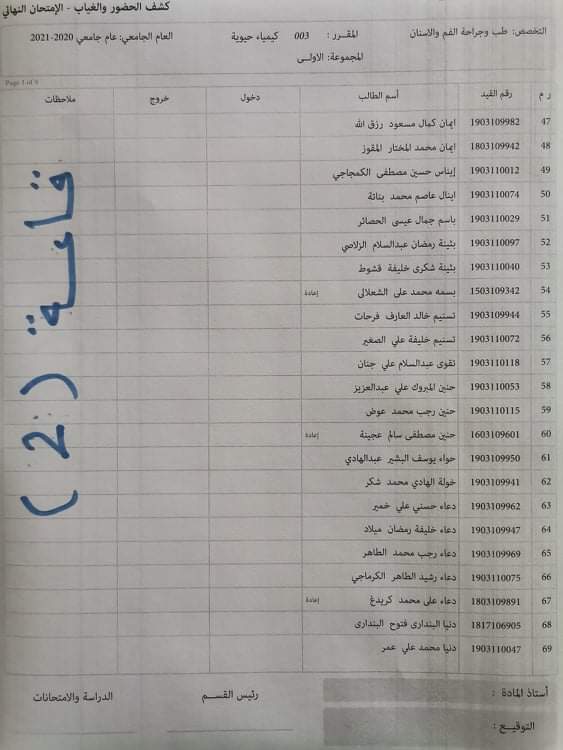 كشف الحضور والغياب - الإمتحان النهائي
التخصص: طب وجراحة الفم والاسنان المقـرر : 003 كيمياء حيوية العام الجامعي: عام جامعي 2020-2021
المجموعة: الاولـى
Page 3 of 9
ر م رقم القيد أسم الطالب دخول خروج ملاحظات
47 1903109982 ايمان كمال مسعود رزق الله
48 1803109942 ايمان محمد المختار المقوز
49 1903110012 إيناس حسين مصطفى الكمجاجي
50 1903110074 اينال عاصم محمد بناتة
51 1903110029 باسم جمال عيسى الحصائر
52 1903110097 بثينة رمضان عبدالسلام الزلاصي
53 1903110040 بثينة شكرى خليفة قشوط
54 1503109342 بسمه محمد على الشعلالى إعادة
55 1903109944 تسنيم خالد العارف فرحات
56 1903110072 تسنيم خليفة علي الصغير
57 1903110118 تقوى عبدالسلام علي جنان
58 1903110053 حنين المبروك علي عبدالعزيز
59 1903110115 حنين رجب محمد عوض
60 1603109601 حنين مصطفى سالم عجينة إعادة
61 1903109950 حواء يوسف البشير عبدالهادي
62 1903109941 خولة الهادي محمد شكر
63 1903109962 دعاء حسني علي خمير
64 1903109947 دعاء خليفة رمضان ميلاد
65 1903109969 دعاء رجب محمد الطاهر
66 1903110075 دعاء رشيد الطاهر الكرماجي
67 1803109891 دعاء على محمد كريدغ إعادة
68 1817106905 دنيا البندارى فتوح البندارى
69 1903110047 دنيا محمد علي عمر
قاعة (2)
أستاذ المادة : رئيس القســـم الدراسة والامتحانات
التوقيـــع :